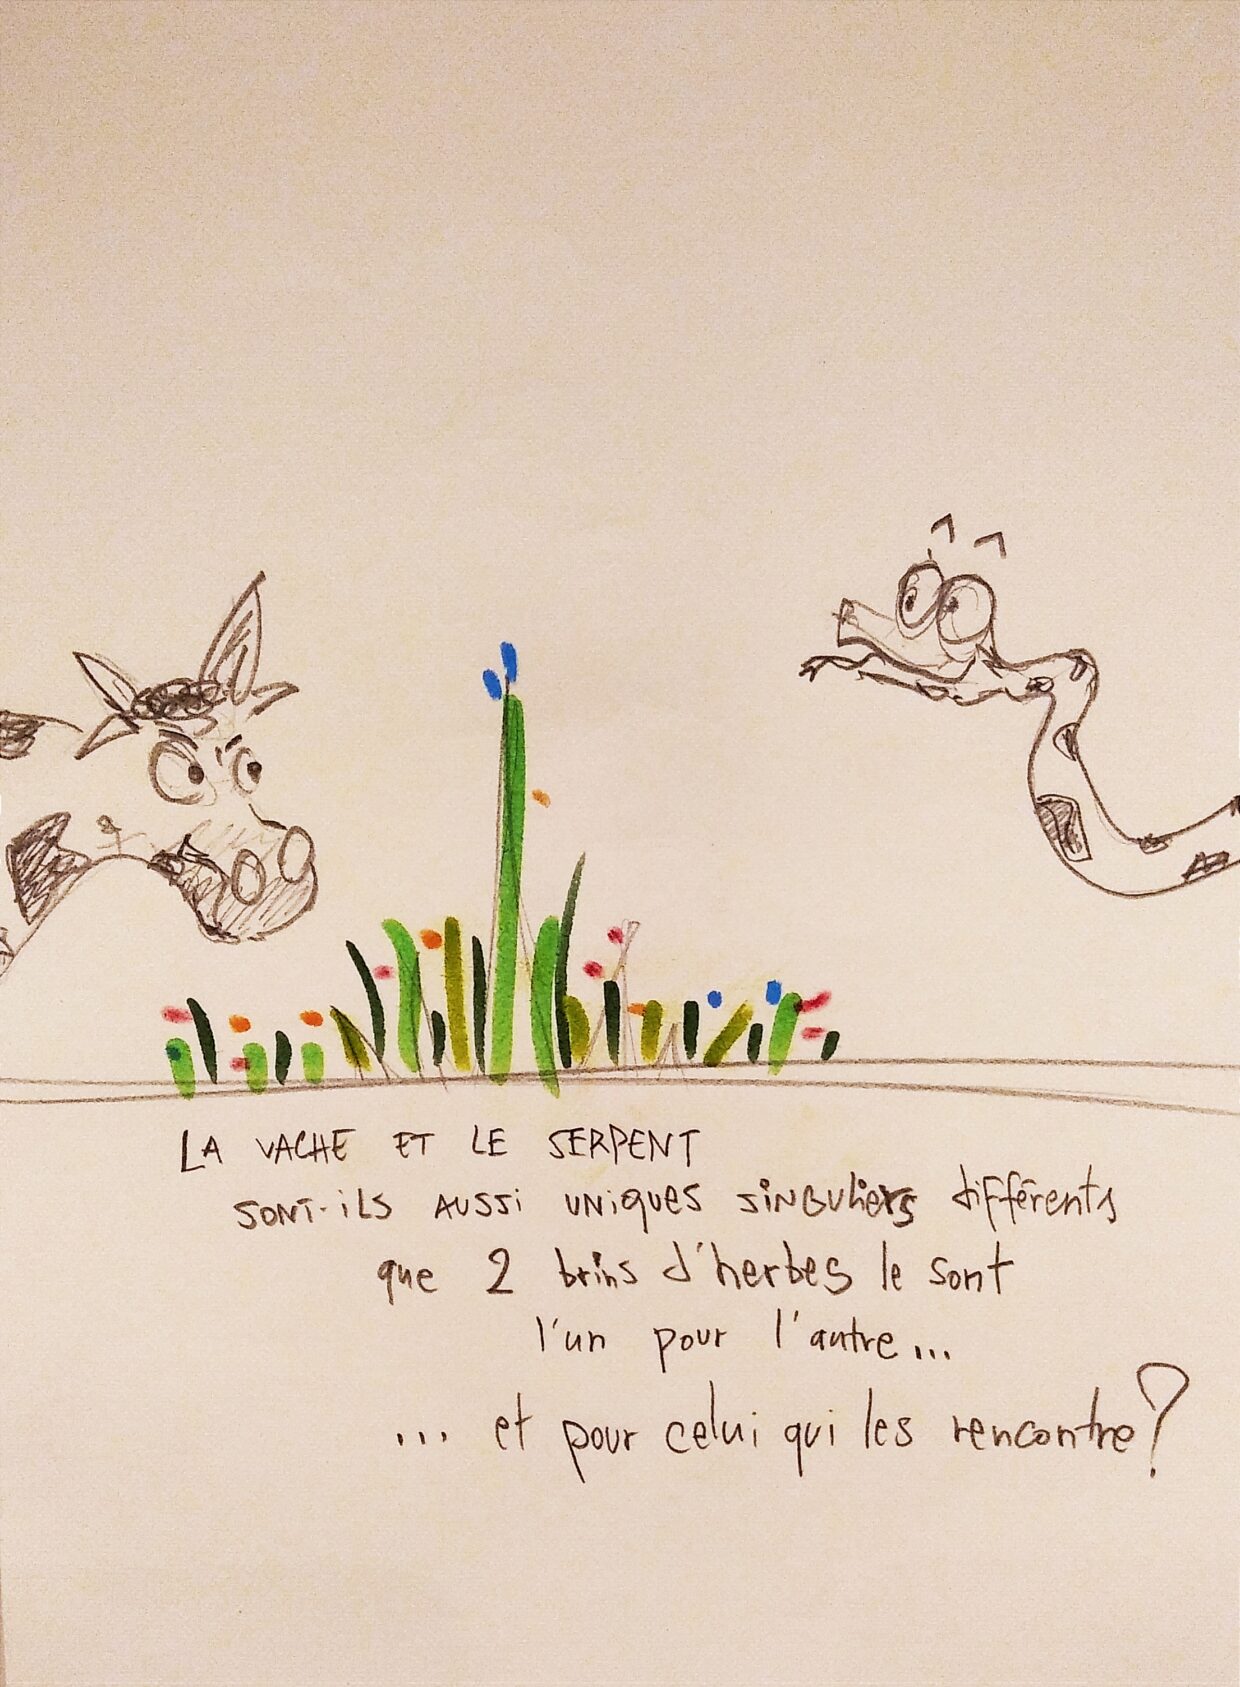 LA VACHE ET LE SERPENT
SONT-ILS AUSSI UNIQUES SINGULIERS différents
que 2 brins d'herbes le sont
l'un pour l'autre...
... et pour celui qui les rencontre?